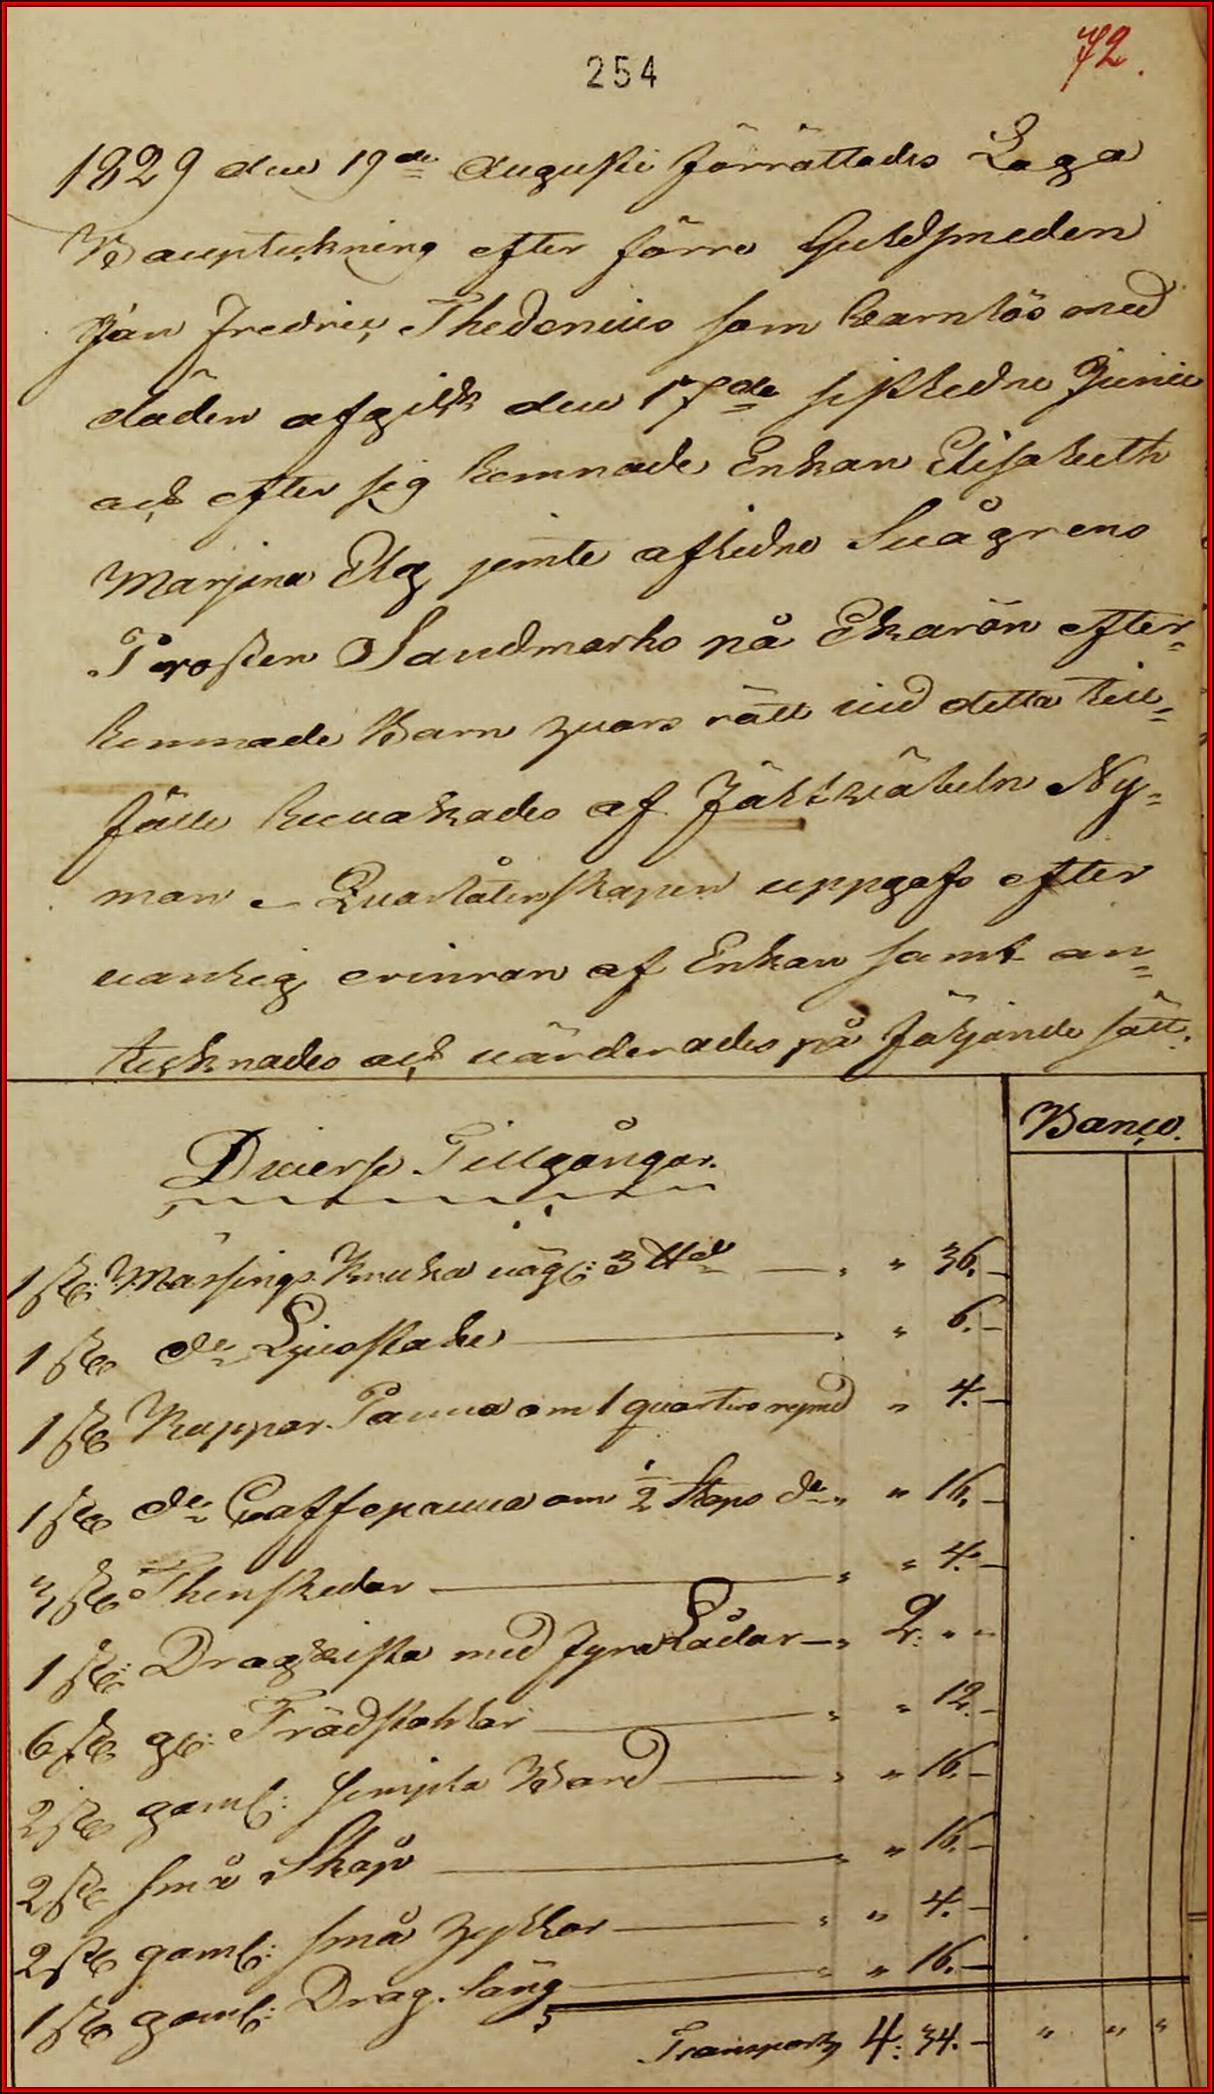 254
72.
1829 den 19de Augusti förrättades Laga
Boupteckning efter förre Guldsmeden
Jan Fredric Thedenius som barnlös med
döden afgick den 17de sistledne Junii
och efter sig lemnade Enkan Elisabeth
Marjena Elg jemte aflidne Svågrens
Prosten Sandmarks på Ekerön efter-
lemnade Barn hvars rätt vid detta till-
fälle bevakades af Fältkväbeln Ny-
man – Qvarlåtenskapen uppgafs efter
vanlig erinran af Enkan samt an-
tecknades och värderades på följande sätt.
Banco.
Diverse Tillgångar.
1 st: Mässings Bruka väg: 3 ℔d " " 36. –
1 st do Ljusstake " " 6. –
1 st Koppar Panna om 1 quarters rymd " 4. –
1 st do Caffepanna om 1/2 Stops do " " 16. –
3 st Theskedar " " 4. –
1 st: Dragkista med fyra Lådor " 2: " "
6 st gl: Trädstolar " " 12. –
2 st gaml: simpla Bord " " 16. –
2 st små Skåp " " 16. –
2 st gaml: små hyllor " " 4. –
1 st gaml: Drag säng " " 16. –
Transport 4: 34. – " " "